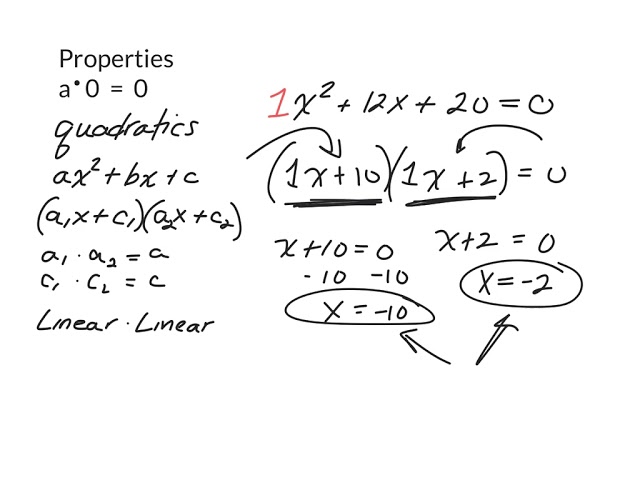 Properties
a•0 = 0
quadratics
ax² + bx + c
(a₁x + c₁)(a₂x + c₂)
a₁ · a₂ = a
c₁ · c₂ = c
Linear · Linear
1x² + 12x + 20 = 0
(1x + 10)(1x + 2) = 0
x + 10 = 0
-10 -10
x = -10
x + 2 = 0
x = -2